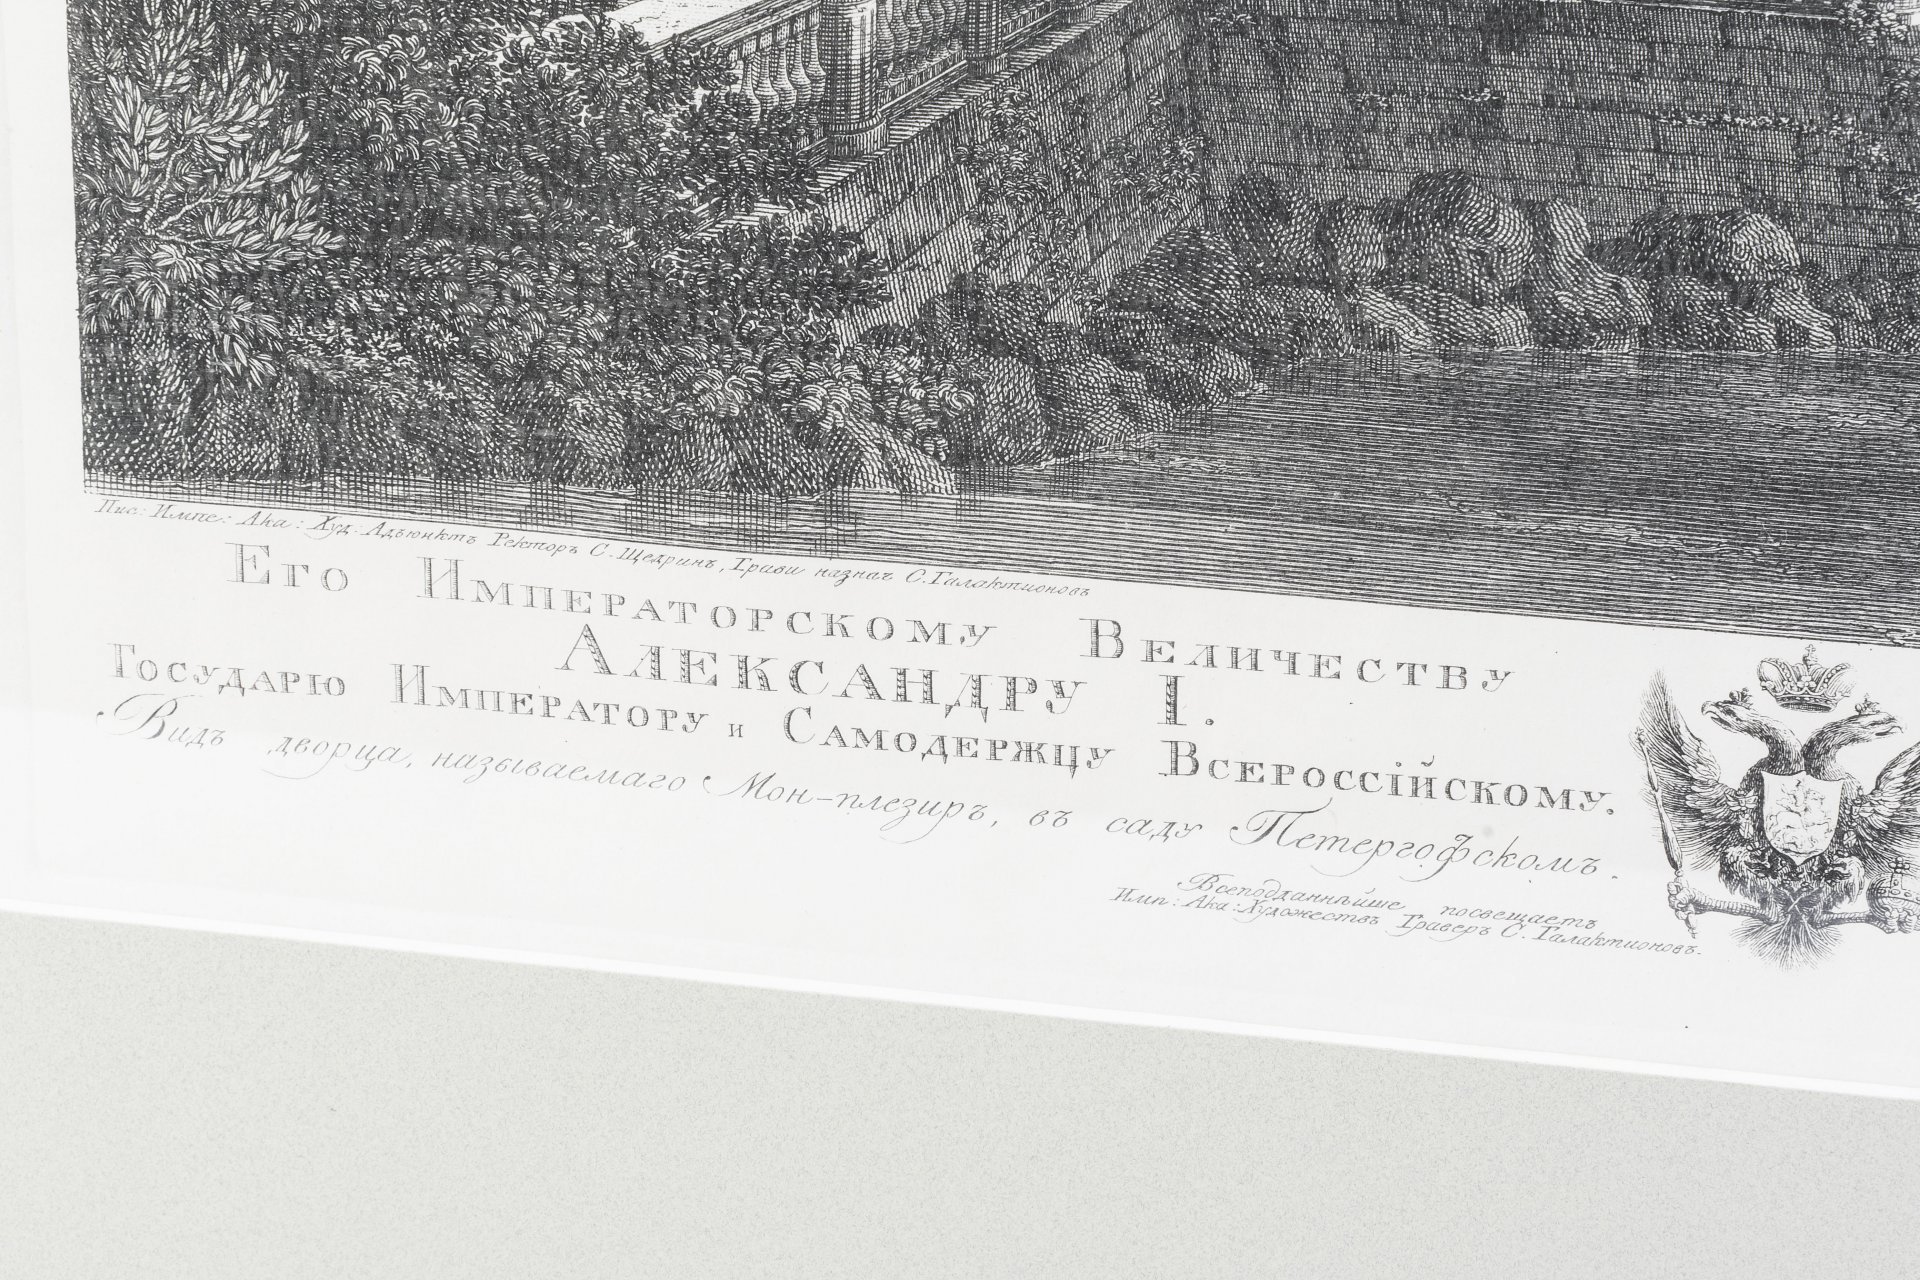 Пис: Импе: Ака: Худ: Адъюнктъ Ректоръ С. Щедринъ, Грави назнач С. Галактионовъ
Его Императорскому Величеству
Александру I.
Государю Императору и Самодержцу Всероссійскому.
Видъ дворца, называемаго Мон-плезиръ, въ саду Петергофскомъ.
Всеподданнѣйше посвещаетъ
Имп: Ака: Художествъ Граверъ С. Галактионовъ.